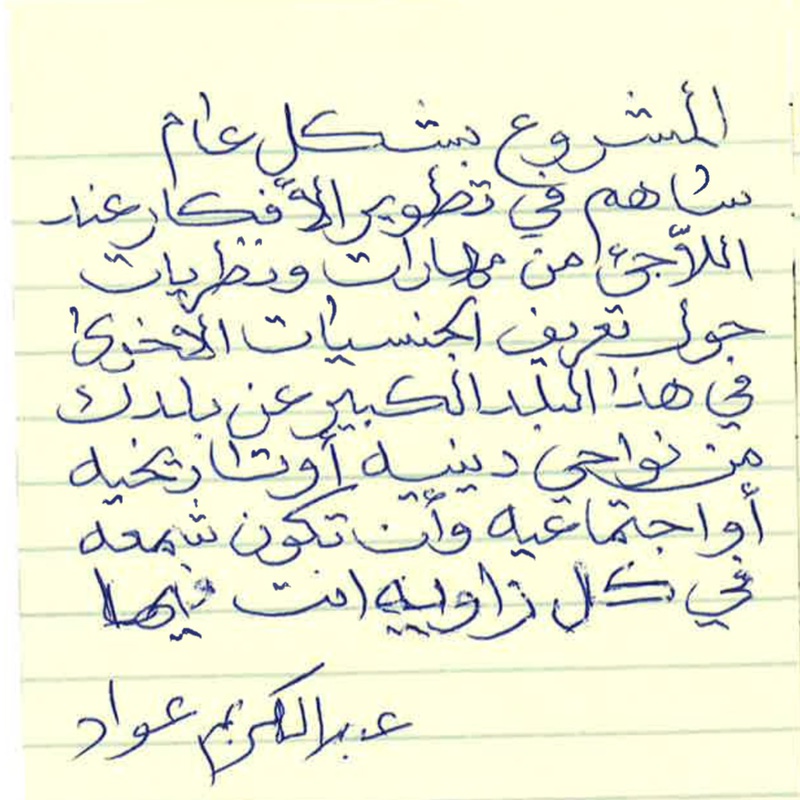 المشروع بشكل عام
ساهم في تطوير الأفكار عند
اللاّجئ من مهارات ونظريات
حول تعريف الجنسيات الأخرى
في هذا البلد الكبير عن بلدك
من نواحي دينيه أو تاريخيه
أو اجتماعيه وأن تكون شمعه
في كل زاوييه انت فيها
عبدالكريم عواد